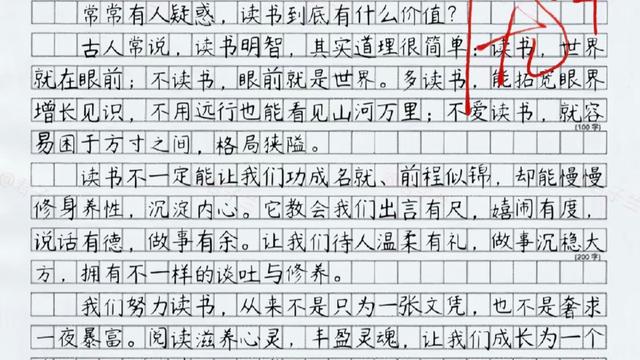 常常有人疑惑，读书到底有什么价值？
古人常说，读书明智，其实道理很简单：读书，世界
就在眼前；不读书，眼前就是世界。多读书，能拓宽眼界
增长见识，不用远行也能看见山河万里；不爱读书，就容
(100字)
易困于方寸之间，格局狭隘。
读书不一定能让我们功成名就、前程似锦，却能慢慢
修身养性，沉淀内心。它教会我们出言有尺，嬉闹有度，
说话有德，做事有余。让我们待人温柔有礼，做事沉稳大
(200字)
方，拥有不一样的谈吐与修养。
我们努力读书，从来不是只为一张文凭，也不是奢求
一夜暴富。阅读滋养心灵，丰盈灵魂，让我们成长为一个